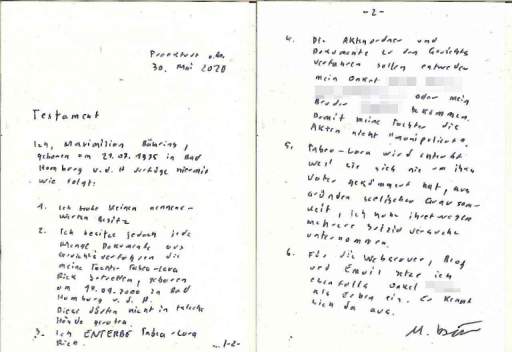 Frankfurt a.M.
30. Mai 2020
Testament
Ich, Maximilian Bähring,
geboren am 21.07.1975 in Bad
Homburg v.d.H verfüge hiermit
wie folgt:
1. Ich habe keinen nennens-
werten Besitz
2. Ich besitze jedoch jede
Menge Dokumente aus
Gerichtsverfahren die
meine Tochter Tabea-Lara
Riek betreffen, geboren
am 14.09.2000 in Bad
Homburg v.d.H.
Diese dürfen nicht in falsche
Hände geraten.
3. Ich ENTERBE Tabea-Lara
Riek.
..1-2-
-2-
4. Die Aktenordner und
Dokumente zu den Gerichts
verfahren sollen entweder
mein Onkel
oder mein
Bruder bekommen.
Damit meine Tochter die
Akten nicht "manipuliert".
5. Tabea-Lara wird enterbt
weil sie sich nie um ihren
Vater gekümmert hat, aus
Gründen seelischer Grausam-
keit, ich habe ihretwegen
mehrere Suizidversuche
unternommen.
6. Für die Webserver, Blog
und Email setze ich
ebenfalls Onkel
als Erben ein. Er kennt
sich da aus.